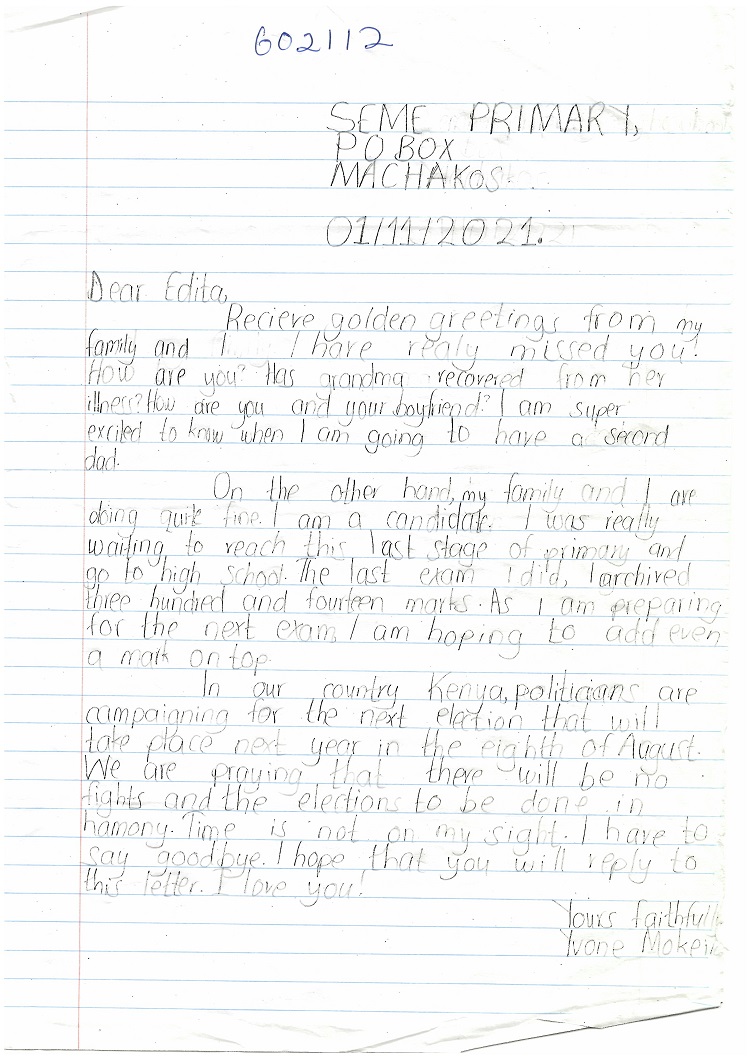 602112
SEME PRIMARY,
P O BOX
MACHAKOS.
01/11/2021.
Dear Edita,
Recieve golden greetings from my
family and I. I have realy missed you!
How are you? Has grandma recovered from her
illness? How are you and your boyfriend? I am super
excited to know when I am going to have a second
dad.
On the other hand, my family and I are
doing quite fine. I am a candidate. I was really
waiting to reach this last stage of primary and
go to high school. The last exam I did, I archived
three hundred and fourteen marks. As I am preparing
for the next exam, I am hoping to add even
a mark on top.
In our country Kenya, politicians are
campaigning for the next election that will
take place next year in the eighth of August.
We are praying that there will be no
fights and the elections to be done in
hamony. Time is not on my sight. I have to
say goodbye. I hope that you will reply to
this letter. I love you!
Yours faithfull
Yvone